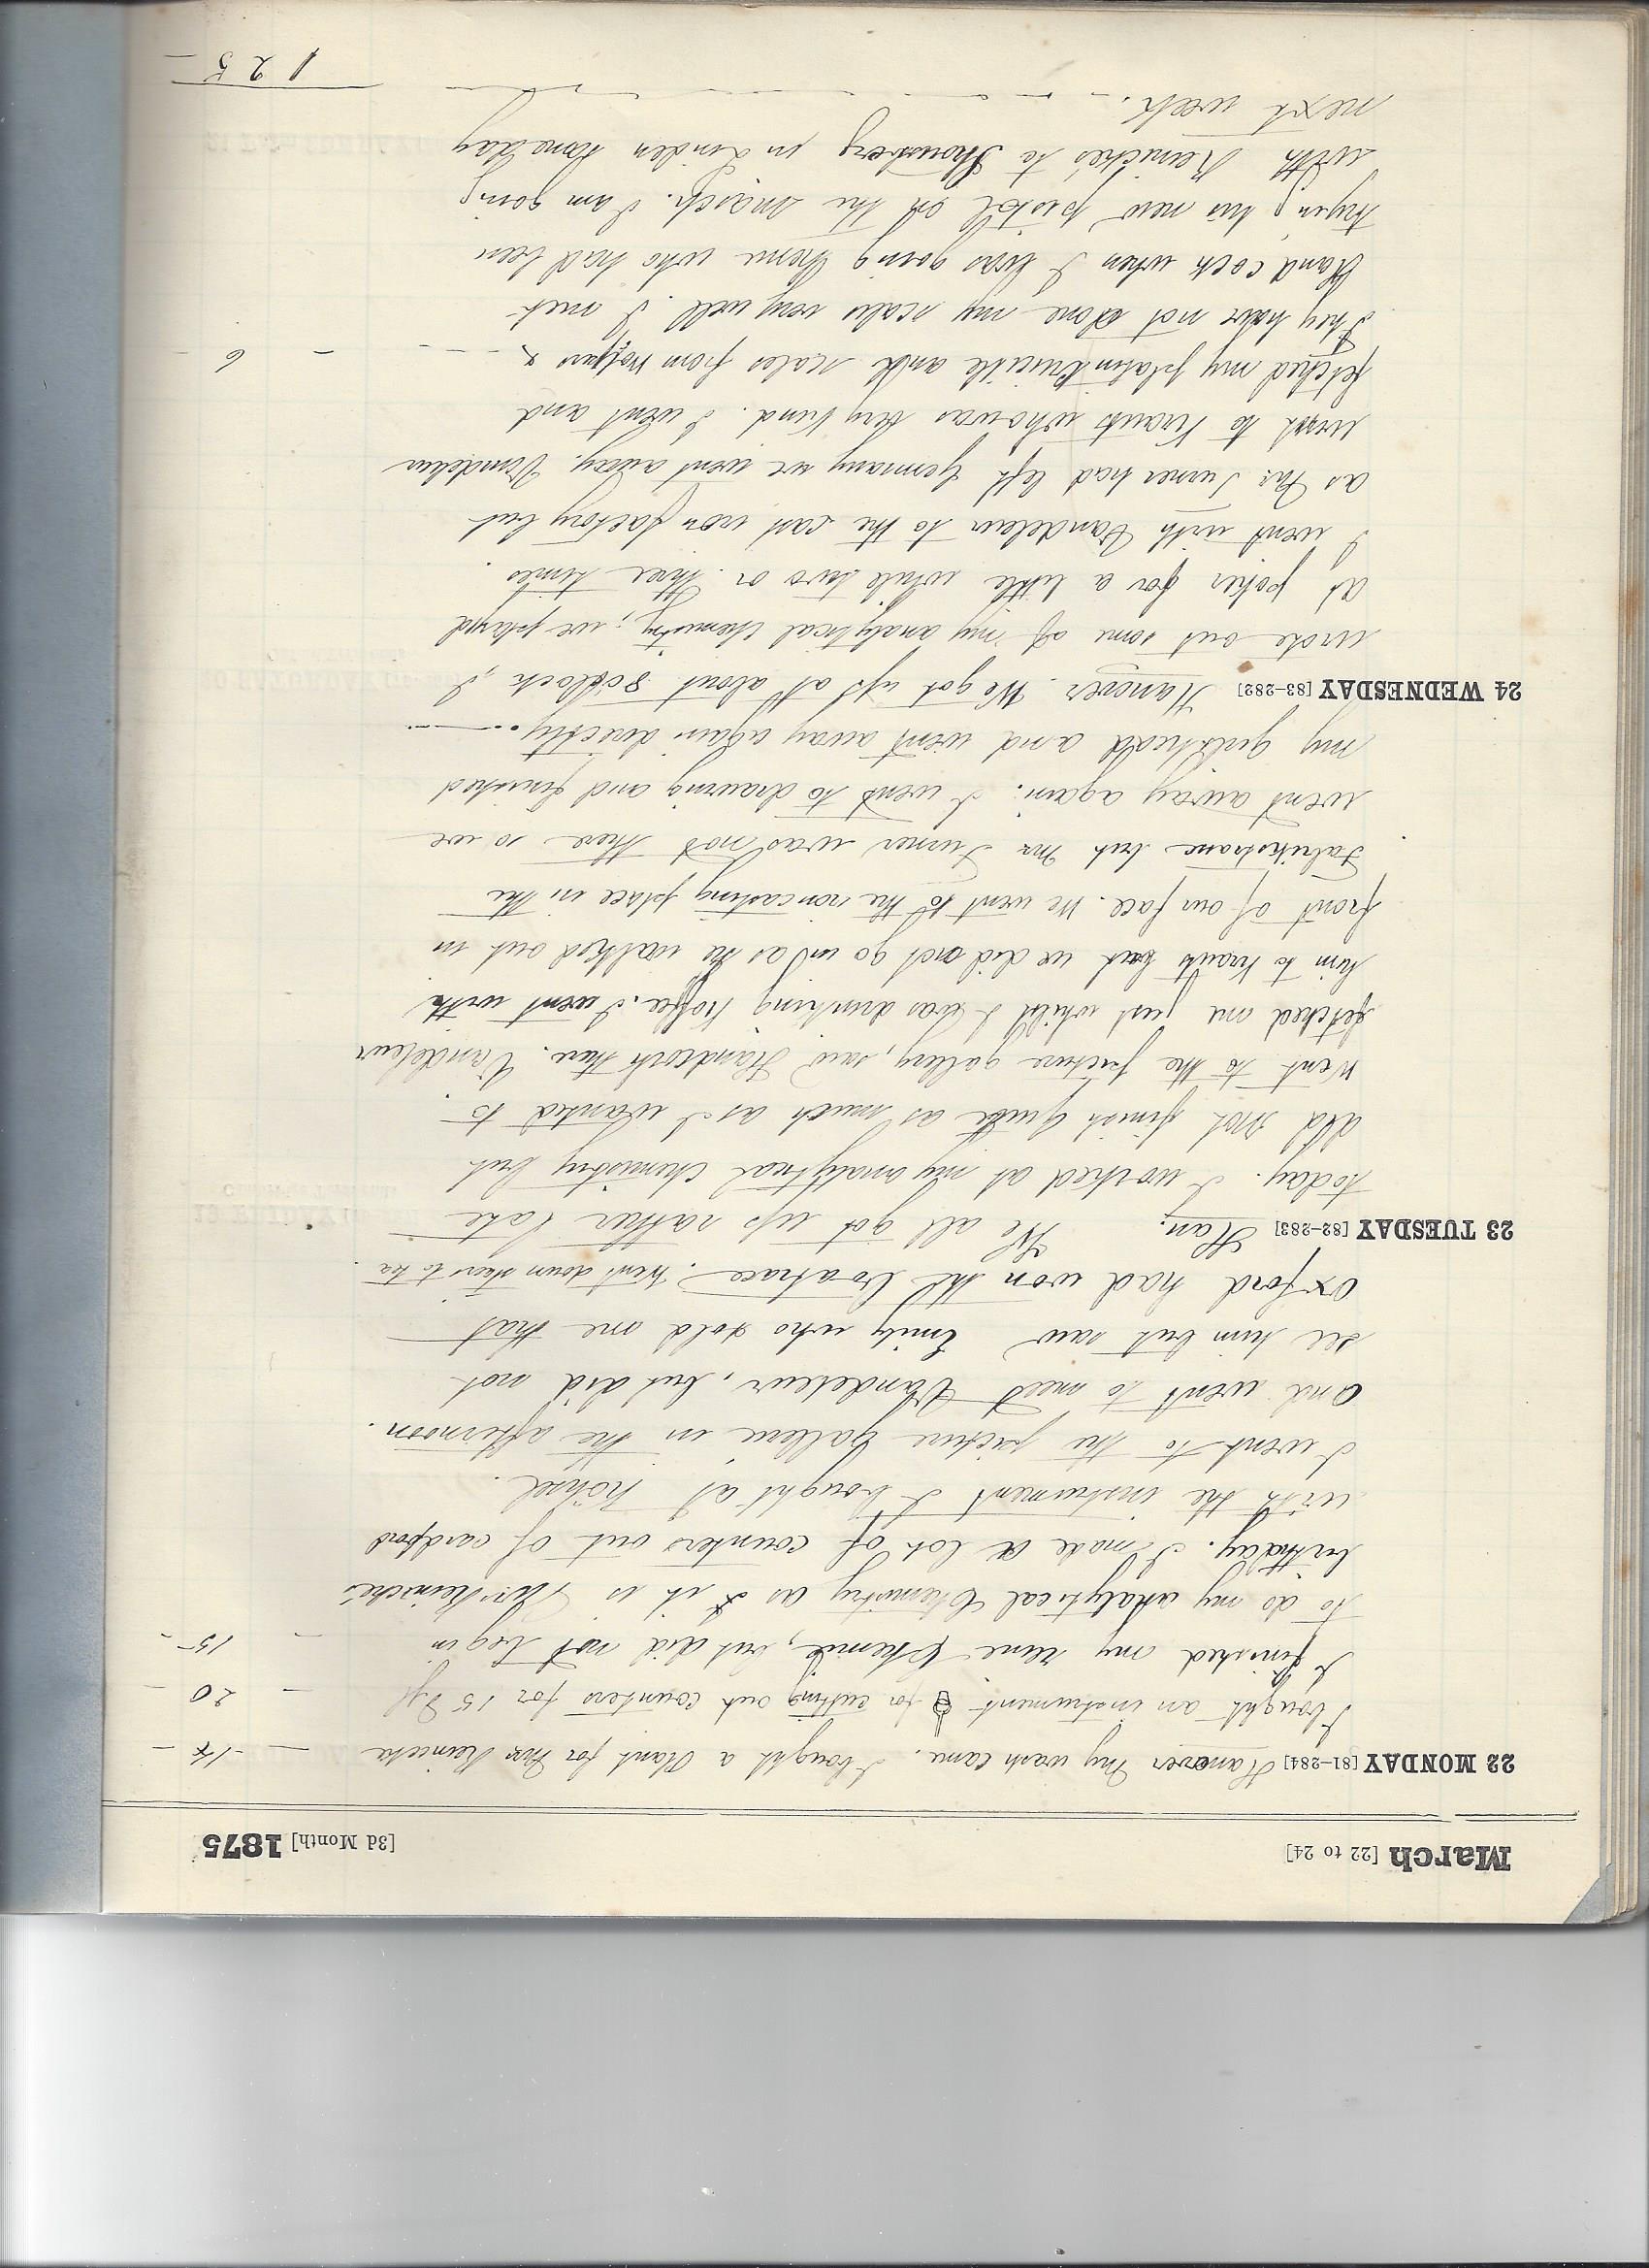 March [22 to 24] [3d Month] 1875
22 MONDAY [81-284] Hanover My wash came. I bought a Plant for Mrs Reinecke
I bought an instrument for cutting out counters for 15 — 20 —
I finished my reine Chemie, but did not begin — 15 —
to do my analytical Chemistry as it is Reinecke's
birthday. I made a lot of counters out of
with the instrument I bought at
I went to the picture Gallerie in the afternoon.
and went to meet Vandeleur, but did not
see him but saw Emily who told me that
Oxford had won the boatrace. Went down stairs to tea.
23 TUESDAY [82-283] Han. We all got up rather late
today. I worked at my analytical Chemistry but
did not finish quite as much as I wanted to
Went to the picture gallery, saw Handcock there. Vandeleur
fetched me just while I was drinking Koffee. I went with
him to Krauts but we did not go in as he walked out in
front of our face. We went to the ironcasting place in the
Fabrikstrasse but Mr Turner was not there so we
went away again. I went to drawing and finished
my and went away again directly.
24 WEDNESDAY [83-282] Hanover. We got up at about 8 oclock, I
wrote out some of my analytical chemistry; we played
at poker for a little while two or three times.
I went with Vandeleur to the cast iron factory but
as Mr Turner had left Germany we went away. Vandeleur
went to Krauts who was very kind. I went and
fetched my platin Crucible and scales from & — 6 —
They have not done my scales very well. I met
Handcock when I was going home who had been
trying his new pistol on the Masch. I am going
with Reinickes to in Linden someday
next week.
1 25 —